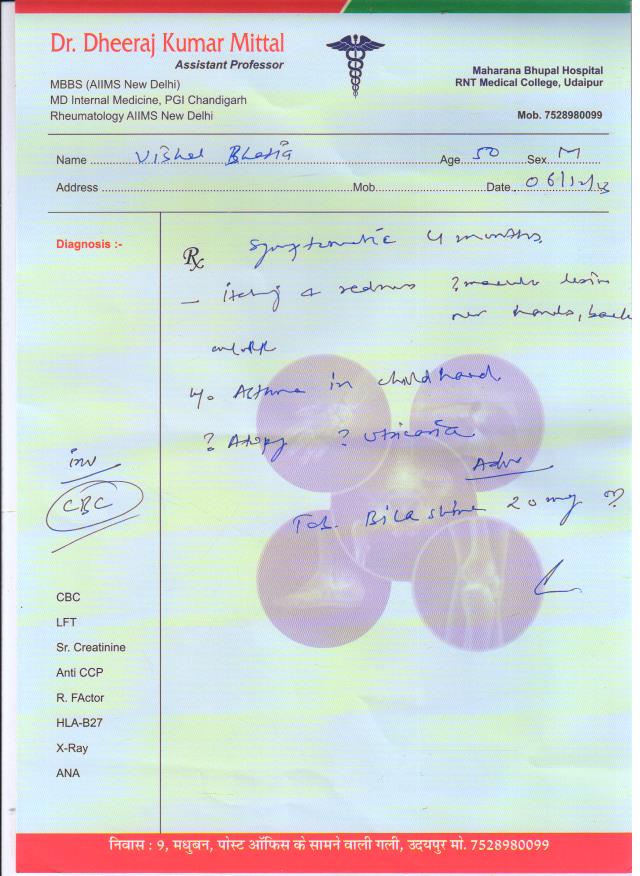 Dr. Dheeraj Kumar Mittal
Assistant Professor
MBBS (AIIMS New Delhi)
MD Internal Medicine, PGI Chandigarh
Rheumatology AIIMS New Delhi
Maharana Bhupal Hospital
RNT Medical College, Udaipur
Mob. 7528980099
Name Vishal Bhatia Age 50 Sex M
Address Mob. Date 06/12/23
Diagnosis :-
Rx Symptomatic 4 months
- itching & redness ? macular lesion
over hands, back
H/o Asthma in childhood
? Atopy ? Urticaria
inv
Adv
CBC
Tab. Bilastine 20 mg
CBC
LFT
Sr. Creatinine
Anti CCP
R. FActor
HLA-B27
X-Ray
ANA
निवास : 9, मधुबन, पोस्ट ऑफिस के सामने वाली गली, उदयपुर मो. 7528980099